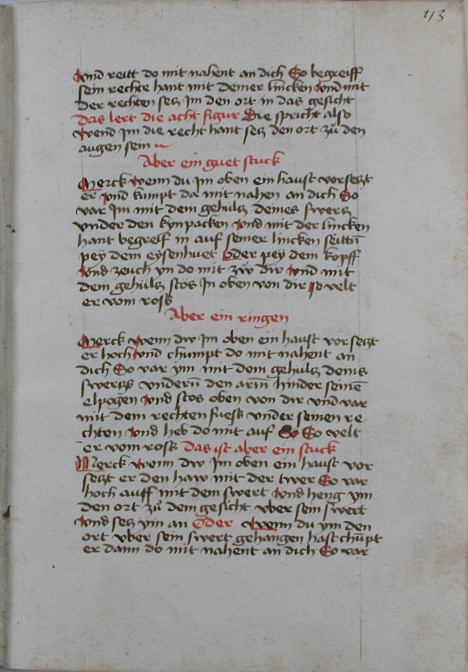 113
Vnd reitt do mit nahent an dich So begreiff
sein rechte hant mit deiner lincken Vnd mit
der rechten secz im den ort in das gesicht
das lert die acht figur Die spricht also
Wend im die recht hant secz den ort zu den
augen sein
Aber ein guet stuck
Merck wenn du Im oben ein haust vorseczt
er Vnd kumpt da mit nahen an dich So
var Im mit dem gehulcz deines swercz
vnder den kynpacken Vnd mit der lincken
hant begreif in auf seiner lincken seittn
pey dem eysenhuet Oder pey dem kopff
Vnd zeuch yn do mit zw dir Vnd mit
dem gehulcz stos In oben von dir so velt
er vom rosk
Aber ein ringen
Merck wenn dw Im oben ein haust vor seczt
er hoch Vnd chumpt do mit nahent an
dich So var ym mit dem gehulcz deins
swercz vndern den arm hinder seinē
elpogen Vnd stos oben von dir vnd var
mit dem rechten fuess vnder seinen re
chten Vnd heb do mit auf So velt
er vom rosk Das ist aber ein stuck
Merck wenn dw Im oben ein haust vor
seczt er den haw mit der twer So var
hoch auff mit dem swert Vnd heng ym
den ort zu dem gesicht vber sein swert
Vnd secz ym an Oder Wenn du ym den
ort vber sein swert gehangen hast chupt
er dann do mit nahent an dich So var